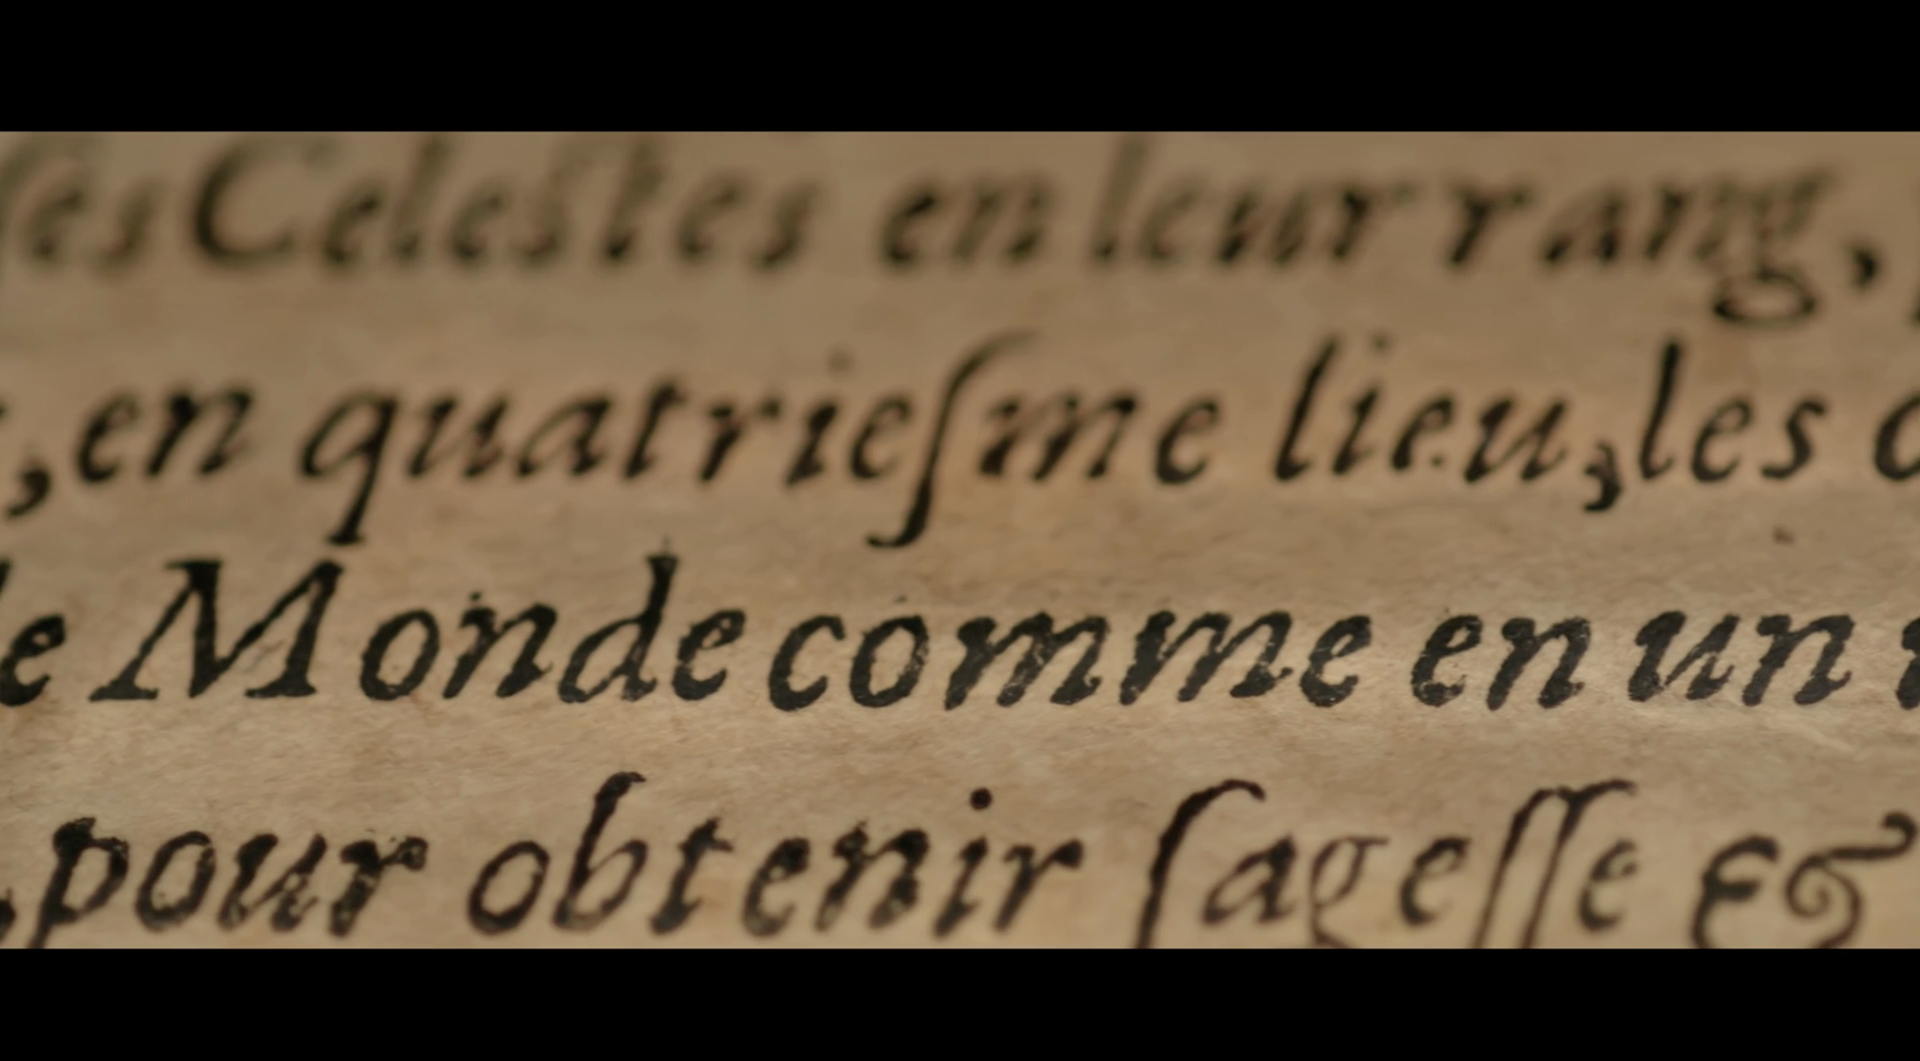 ſes Celeſtes en leur rang,
,en quatrieſme lieu, les
le Monde comme en un
,pour obtenir ſageſſe &